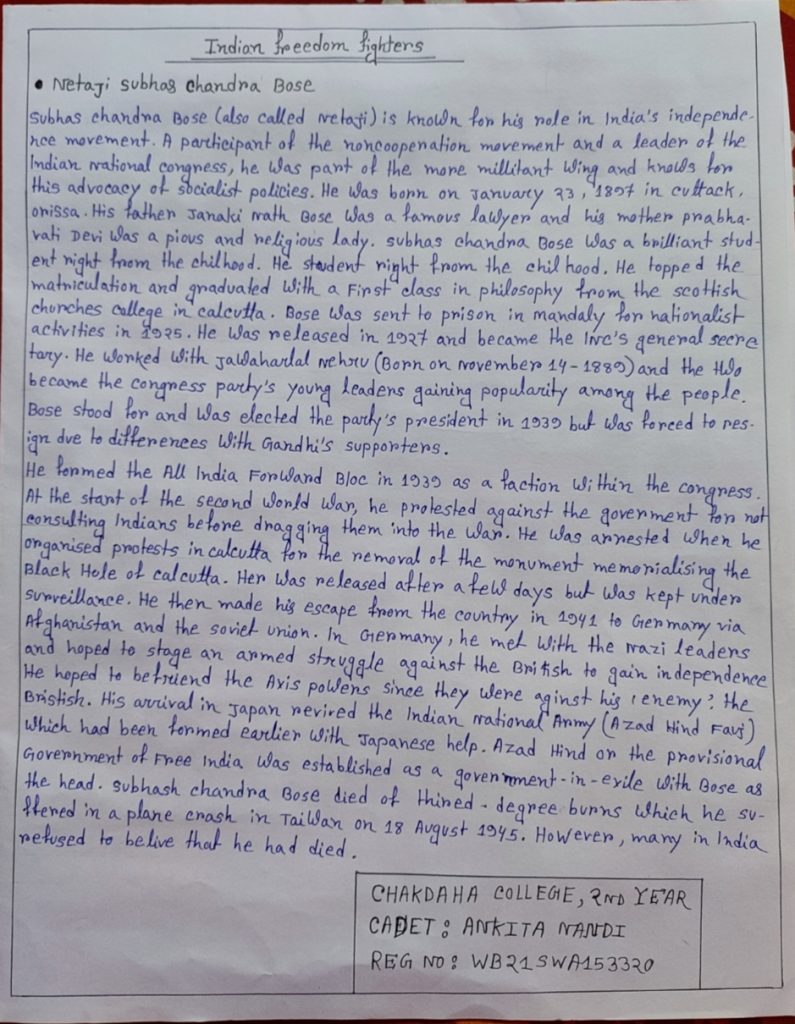 Indian freedom fighters
• Netaji subhas chandra Bose
Subhas chandra Bose (also called Netaji) is known for his role in India's independe-
nce movement. A participant of the noncooperation movement and a leader of the
Indian National congress, he was part of the more millitant wing and knows for
this advocacy of socialist policies. He was born on January 23, 1897 in cuttack,
orissa. His father Janaki Nath Bose was a famous lawyer and his mother prabha-
vati Devi was a pious and religious lady. subhas chandra Bose was a brilliant stud-
ent right from the chilhood. He student right from the chil hood. He topped the
matriculation and graduated with a First class in philosophy from the scottish
churches college in calcutta. Bose was sent to prison in mandaly for nationalist
activities in 1925. He was released in 1927 and became the INC's general secre
tary. He worked with Jawaharlal Nehru (Born on November 14-1889) and the two
became the congress party's young leaders gaining popularity among the people.
Bose stood for and was elected the party's president in 1939 but was forced to res-
ign due to differences with Gandhi's supporters.
He formed the All India Forward Bloc in 1939 as a faction within the congress.
At the start of the second World War, he protested against the goverment for not
consulting Indians before dragging them into the war. He was arrested when he
organised protests in calcutta for the removal of the monument memorialising the
Black Hole of calcutta. Her was released after a few days but was kept under
surveillance. He then made his escape from the country in 1941 to Germany via
Afghanistan and the soviet union. In Germany, he met with the Nazi leaders
and hoped to stage an armed struggle against the British to gain independence
He hoped to befriend the Axis powers since they were aginst his 'enemy'; the
Bristish. His arrival in Japan revived the Indian National Army (Azad Hind Fauj)
which had been formed earlier with Japanese help. Azad Hind or the provisional
Government of Free India was established as a government-in-exile with Bose as
the head. subhash chandra Bose died of thired-degree burns which he su-
ffered in a plane crash in Taiwan on 18 August 1945. However, many in India
refused to belive that he had died.
CHAKDAHA COLLEGE, 2ND YEAR
CADET: ANKITA NANDI
REG NO: WB21SWA153320